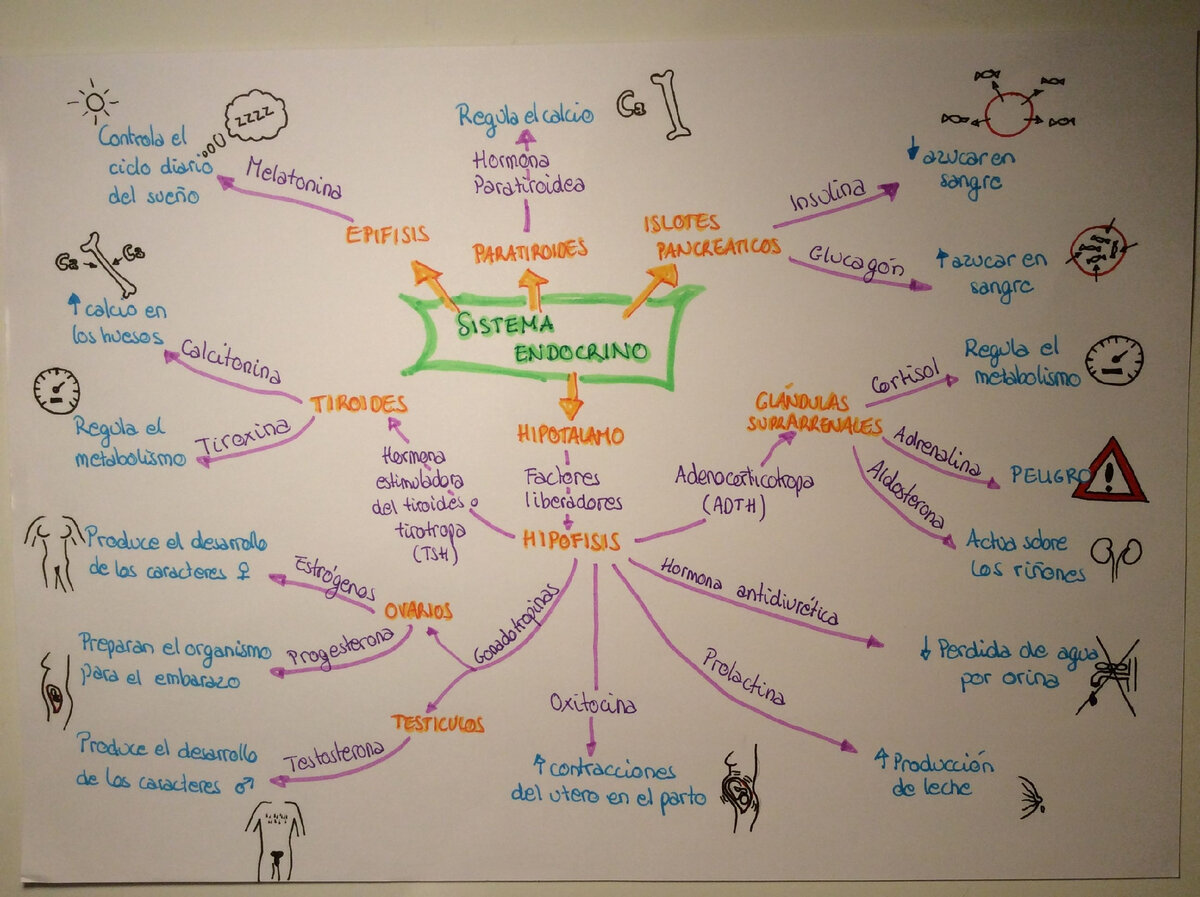 SISTEMA
ENDOCRINO
EPIFISIS
Melatonina
Controla el
ciclo diario
del sueño
zzzz
PARATIROIDES
Hormona
Paratiroidea
Regula el calcio
Ca
ISLOTES
PANCREATICOS
Insulina
azucar en
sangre
Glucagón
azucar en
sangre
HIPOTALAMO
Factores
liberadores
HIPOFISIS
Hormona
estimuladora
del tiroides o
tirotropa
(TSH)
TIROIDES
Calcitonina
calcio en
los huesos
Ca
Ca
Tiroxina
Regula el
metabolismo
Adenocorticotropa
(ADTH)
GLÁNDULAS
SUPRARRENALES
Cortisol
Regula el
metabolismo
Adrenalina
PELIGRO
!
Aldosterona
Actua sobre
los riñones
Gonadotropinas
OVARIOS
Estrógenos
Produce el desarrollo
de los caracteres ♀
Progesterona
Preparan el organismo
para el embarazo
TESTICULOS
Testosterona
Produce el desarrollo
de los caracteres ♂
Oxitocina
contracciones
del utero en el parto
Prolactina
Producción
de leche
Hormona antidiurética
Perdida de agua
por orina